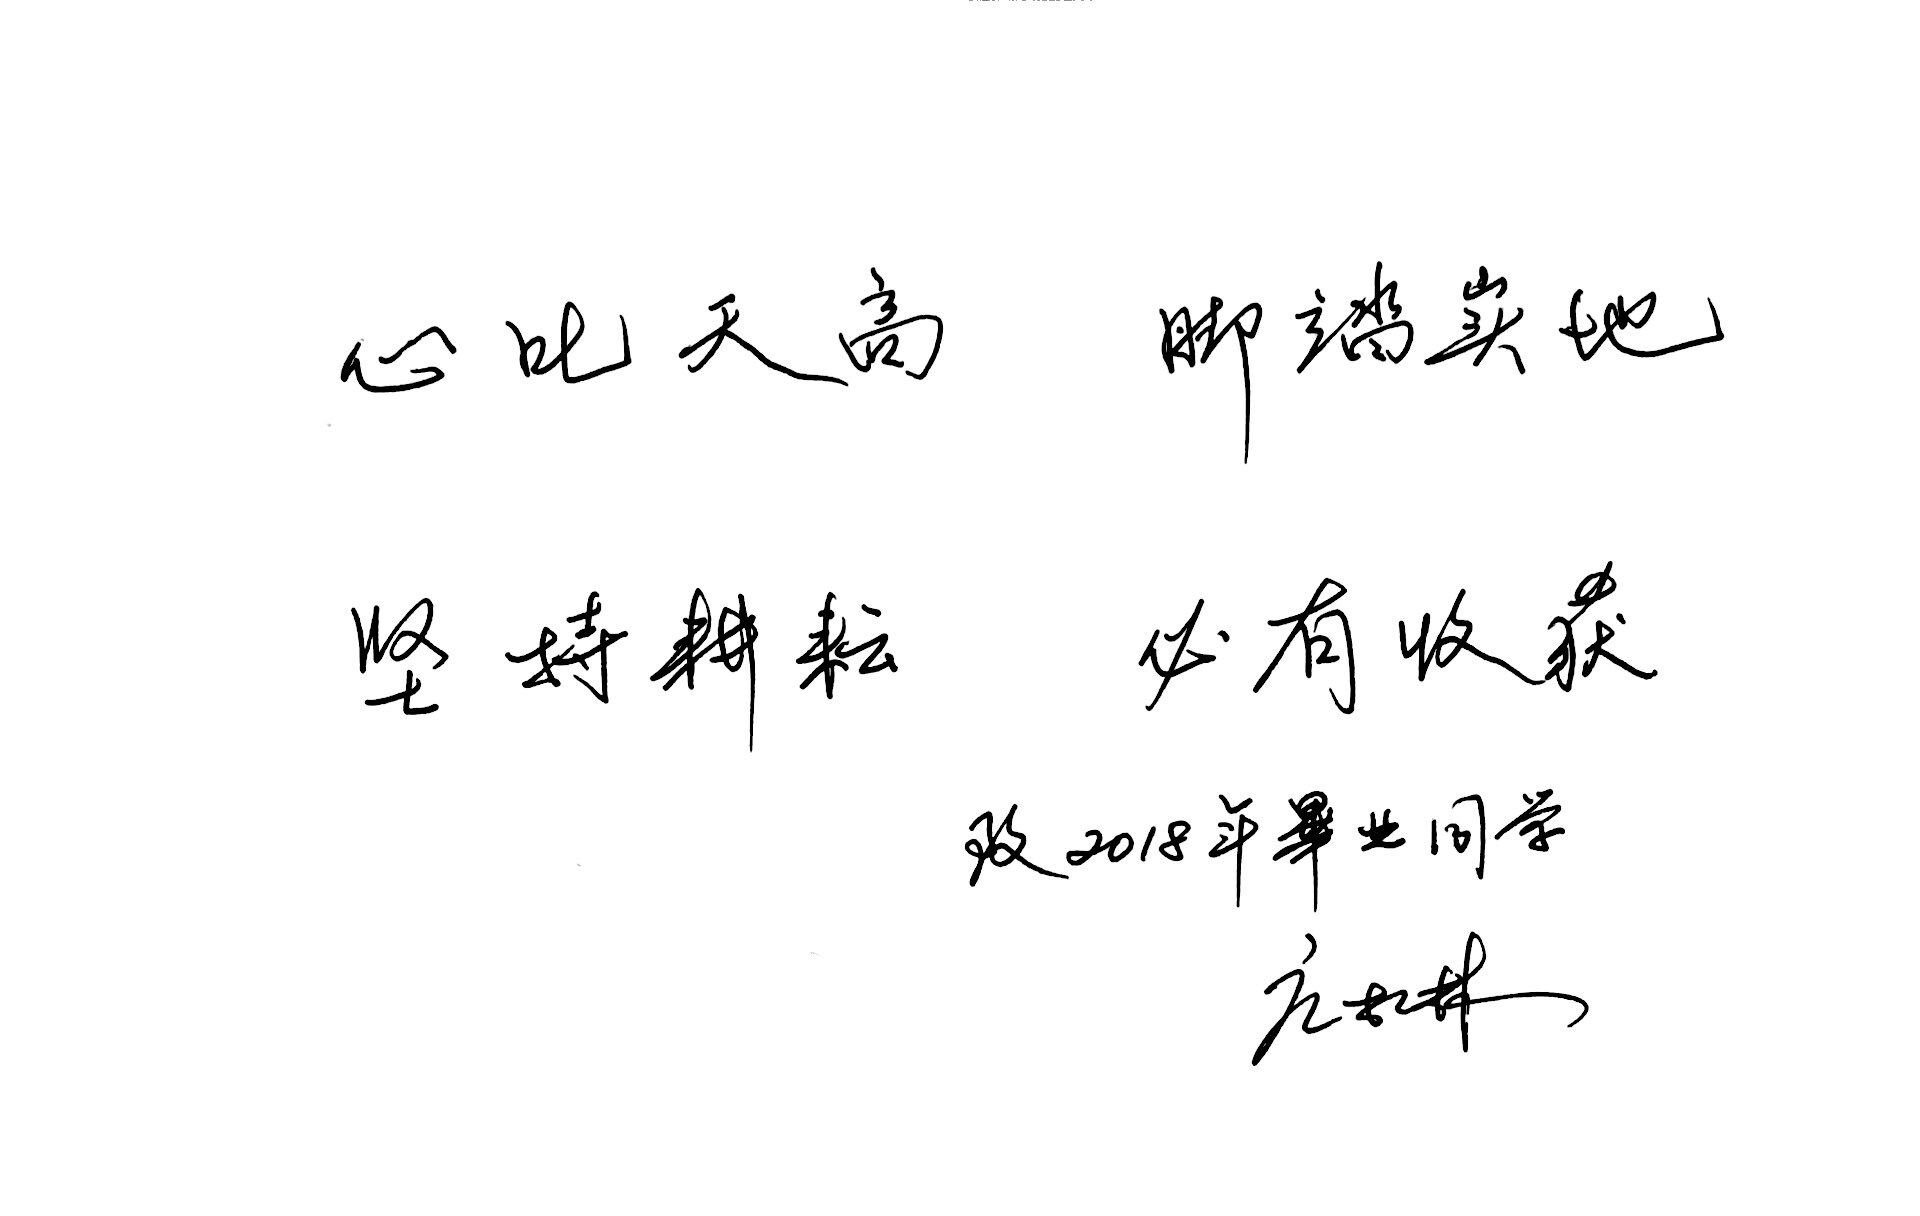 心比天高 脚踏实地
坚持耕耘 必有收获
致2018年畢业同学